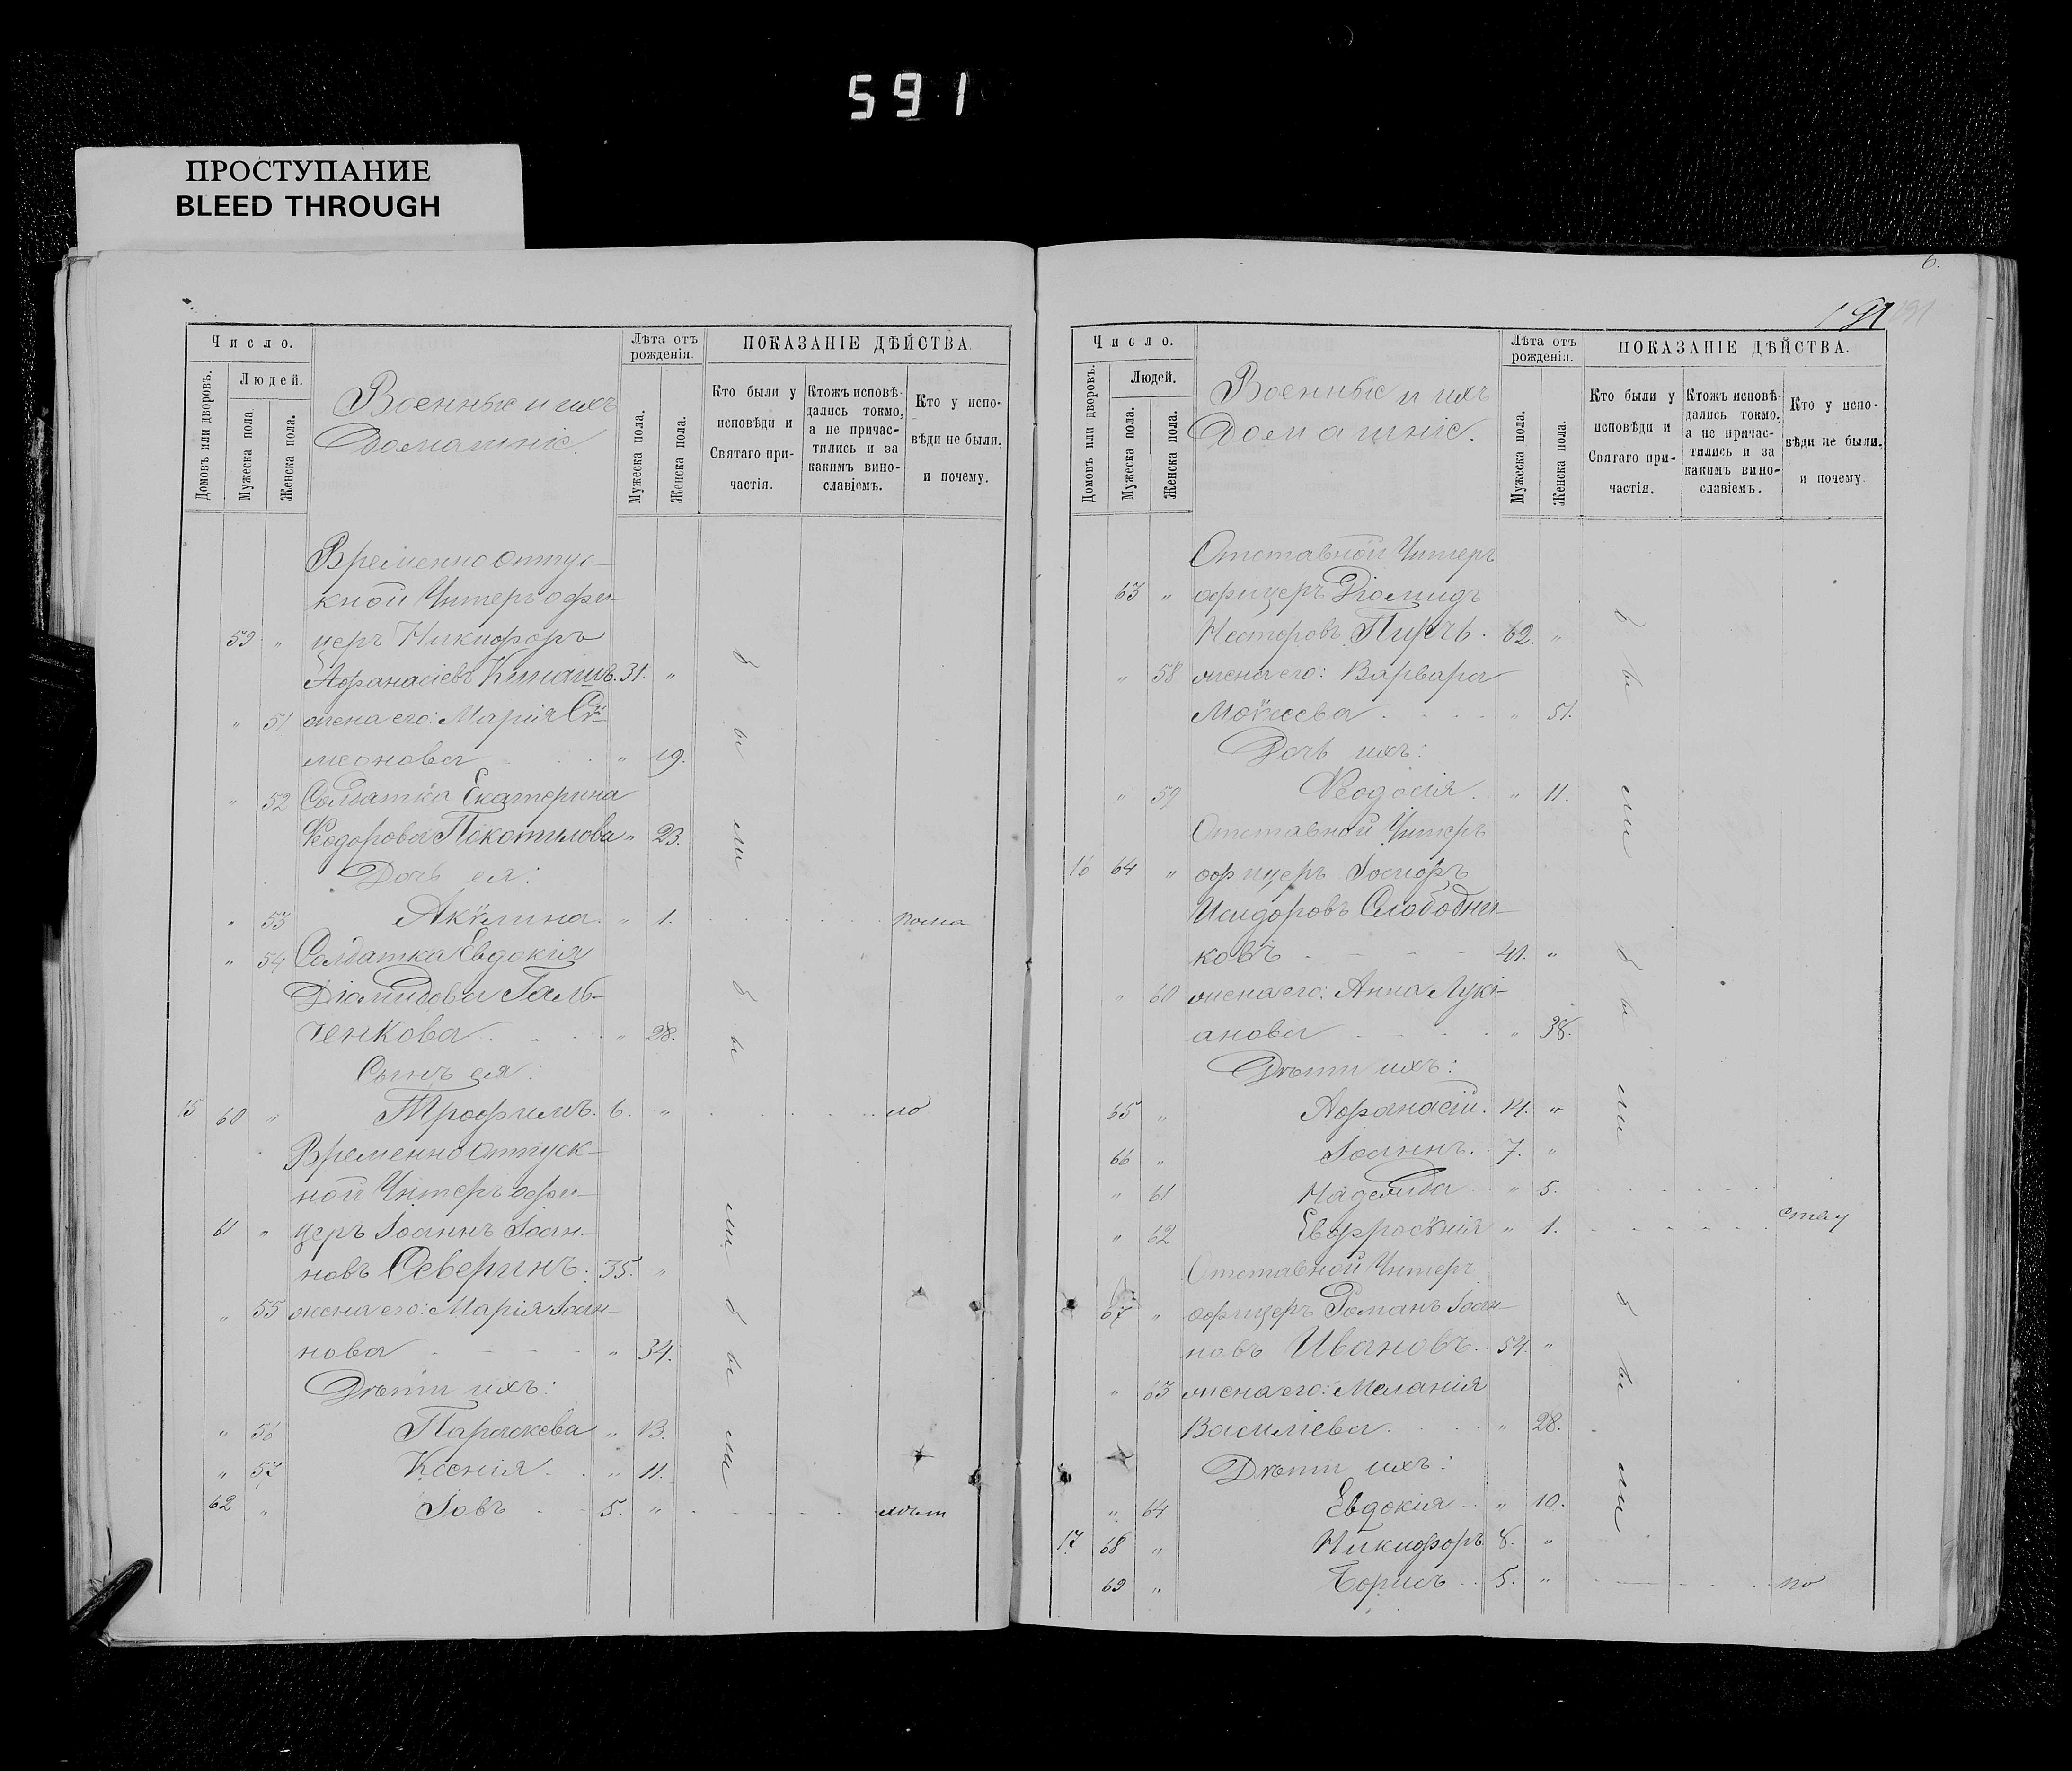 591
ПРОСТУПАНИЕ
BLEED THROUGH
Число.
Домовъ или дворовъ.
Людей.
Мужеска пола
Женска пола.
Военные и ихъ
Домашніе.
Лѣта отъ рожденія.
Мужеска пола.
Женска пола.
ПОКАЗАНІЕ ДѢЙСТВА.
Кто были у исповѣди и Святаго причастія.
Ктожъ исповѣдались токмо, а не причастились и за какимъ винославіемъ.
Кто у исповѣди не были, и почему.
Временно отпус-
кной Унтеръ офи-
59 " церъ Никифоръ
Афанасіевъ 31. "
" 51 жена его: Марія Сѵ-
меонова " 19.
" 52 Солдатка Екатерина
Ѳеодорова Покотилова " 23.
Дочь ея:
" 53 Акѵлина " 1.
" 54 Солдатка Евдокія
Діомидова Галь-
ченкова " 28.
Сынъ ея:
15 60 " Трофимъ. 6. " ло
Временно отпуск-
ной Унтеръ офи-
61 " церъ Іоаннъ Іоан-
новъ Северинъ. 35. "
" 55 жена его: Марія Іоан-
нова " 34.
Дѣти ихъ:
" 56 Параскева " 13.
" 57 Ксенія " 11.
62 " Іовъ 5. " лѣт
были
были
были
6.
191 191
Число.
Домовъ или дворовъ.
Людей.
Мужеска пола.
Женска пола.
Военные и ихъ
Домашніе.
Лѣта отъ рожденія.
Мужеска пола.
Женска пола.
ПОКАЗАНІЕ ДѢЙСТВА.
Кто были у исповѣди и Святаго причастія.
Ктожъ исповѣдались токмо, а не причастились и за какимъ винославіемъ.
Кто у исповѣди не были, и почему.
Отставной Унтеръ
63 " офицеръ Діомидъ
Несторовъ 62. "
" 58 жена его: Варвара
Мокіева " 51.
Дочь ихъ:
" 59 Ѳеодосія " 11.
Отставной Унтеръ
16 64 " офицеръ Іосифъ
Исидоровъ Слободни-
ковъ 41. "
" 60 жена его: Анна Лукі-
анова " 38.
Дѣти ихъ:
65 " Афанасій. 14. "
66 " Іоаннъ. 7. "
" 61 Надежда " 5.
" 62 Евфросѵнія " 1. ству
Отставной Унтеръ
67 " офицеръ Романъ Іоан-
новъ Ивановъ. 54. "
" 63 жена его: Меланія
Василіева " 28.
Дѣти ихъ:
" 64 Евдокія " 10.
17 68 " Никифоръ 8. "
69 " Борисъ 5. " по
были
были
были